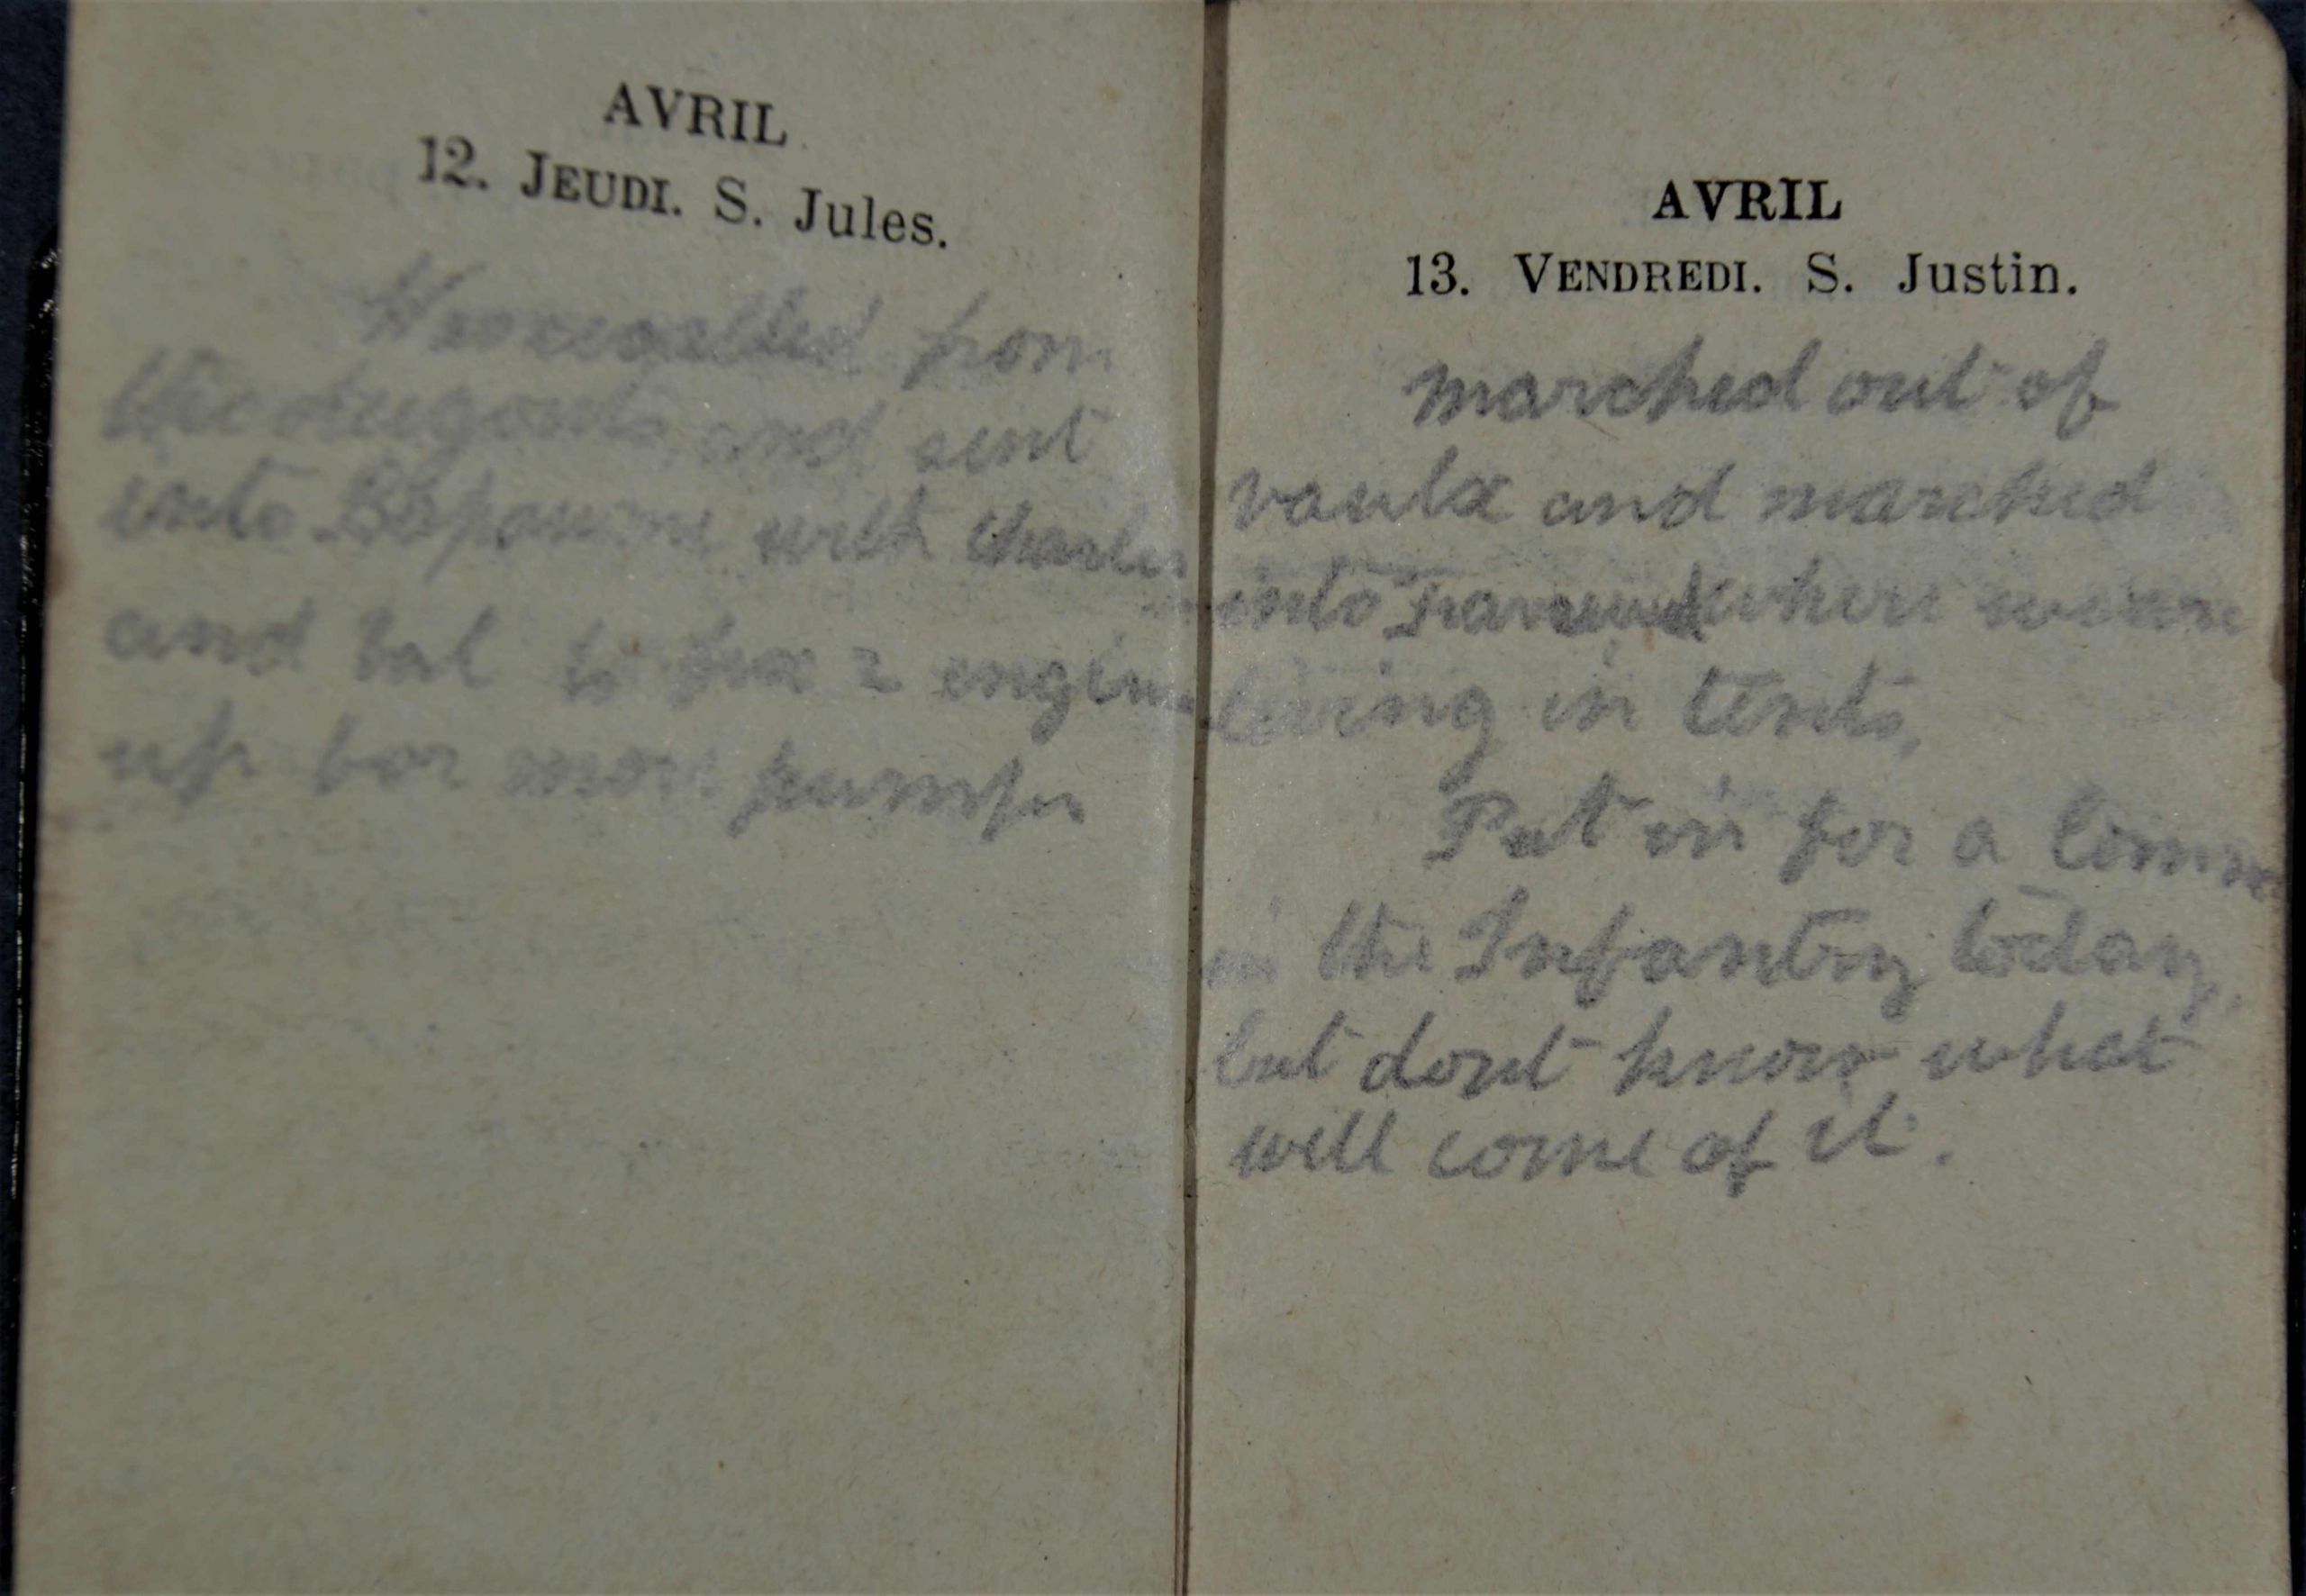 AVRIL
12. JEUDI. S. Jules.
Was recalled from
the dugouts and sent
into Bapaume with Charles
and Val to fix 2 engines
up for more pumps
AVRIL
13. VENDREDI. S. Justin.
marched out of
vaulx and marched
into where we are
living in tents,
Put in for a Comm
in the Infantry today,
but dont know what
will come of it.